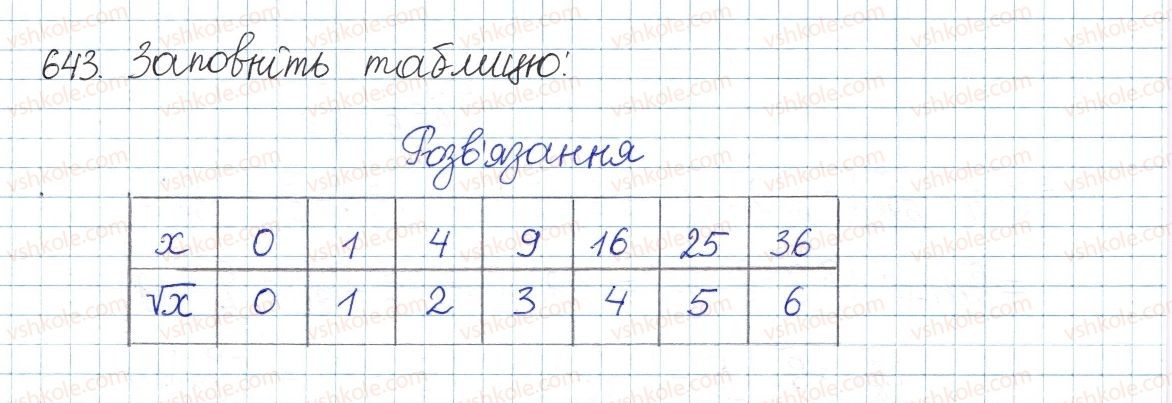 643. Заповніть таблицю:
Розв'язання
x 0 1 4 9 16 25 36
√x 0 1 2 3 4 5 6
vshkole.com